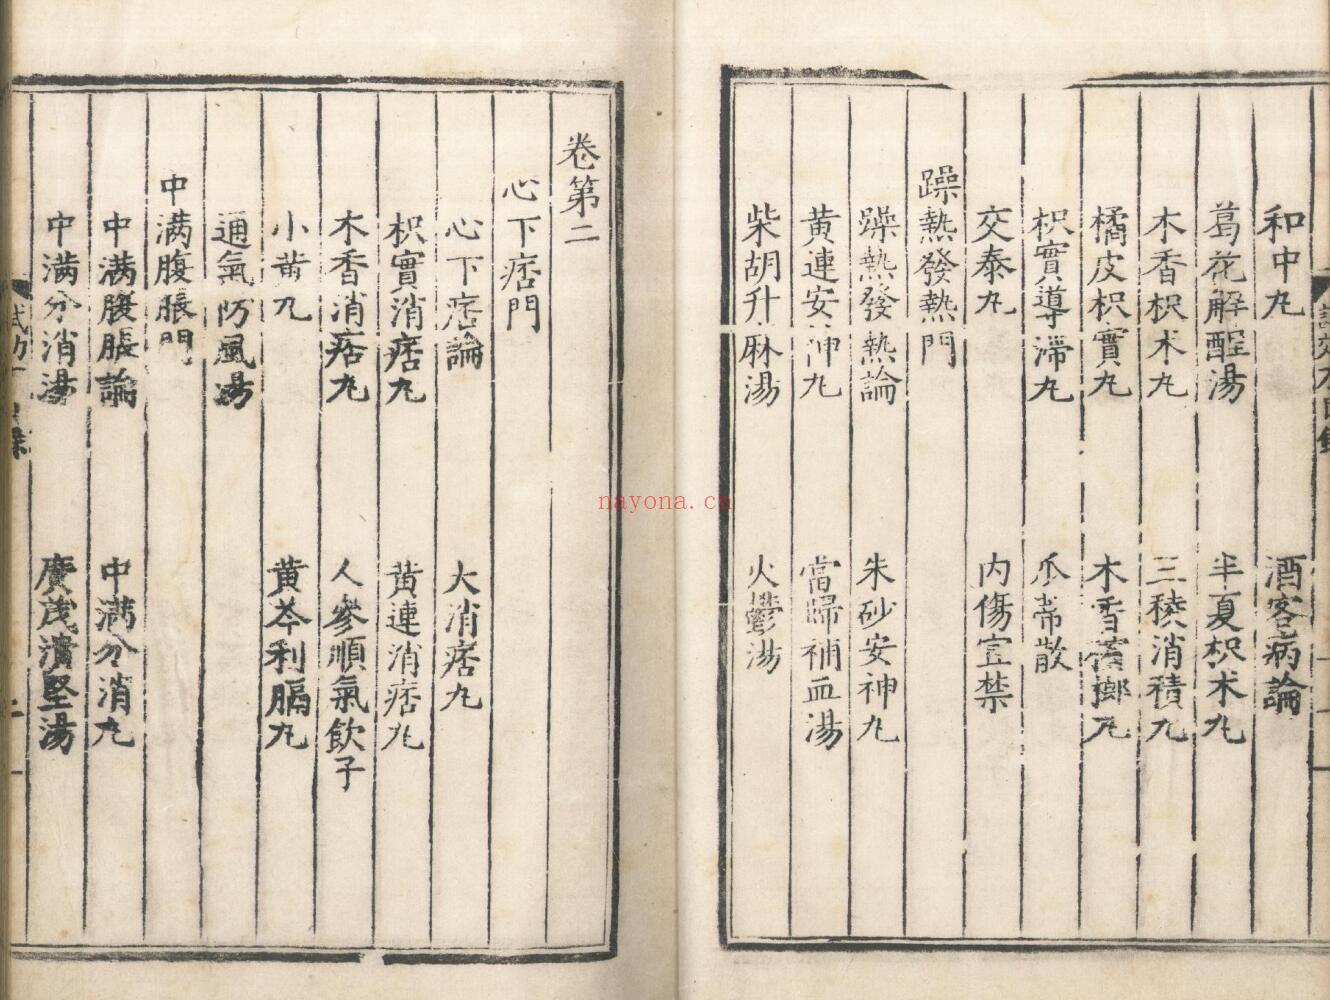 和中丸　酒客病論
葛花解酲湯　半夏枳术丸
木香枳术丸　三稜消積丸
橘皮枳實丸　木香檳榔丸
枳實導滯丸　瓜蔕散
交泰丸　內傷宜禁
躁熱發熱門
躁熱發熱論　朱砂安神丸
黄連安神丸　當歸補血湯
柴胡升麻湯　火鬱湯
卷第二
心下痞門
心下痞論　大消痞丸
枳實消痞丸　黄連消痞丸
木香消痞丸　人參順氣飲子
小黄丸　黄芩利膈丸
通氣防風湯
中滿腹脹門
中滿腹脹論　中滿分消丸
中滿分消湯　廣茂潰堅湯
nayona.cn